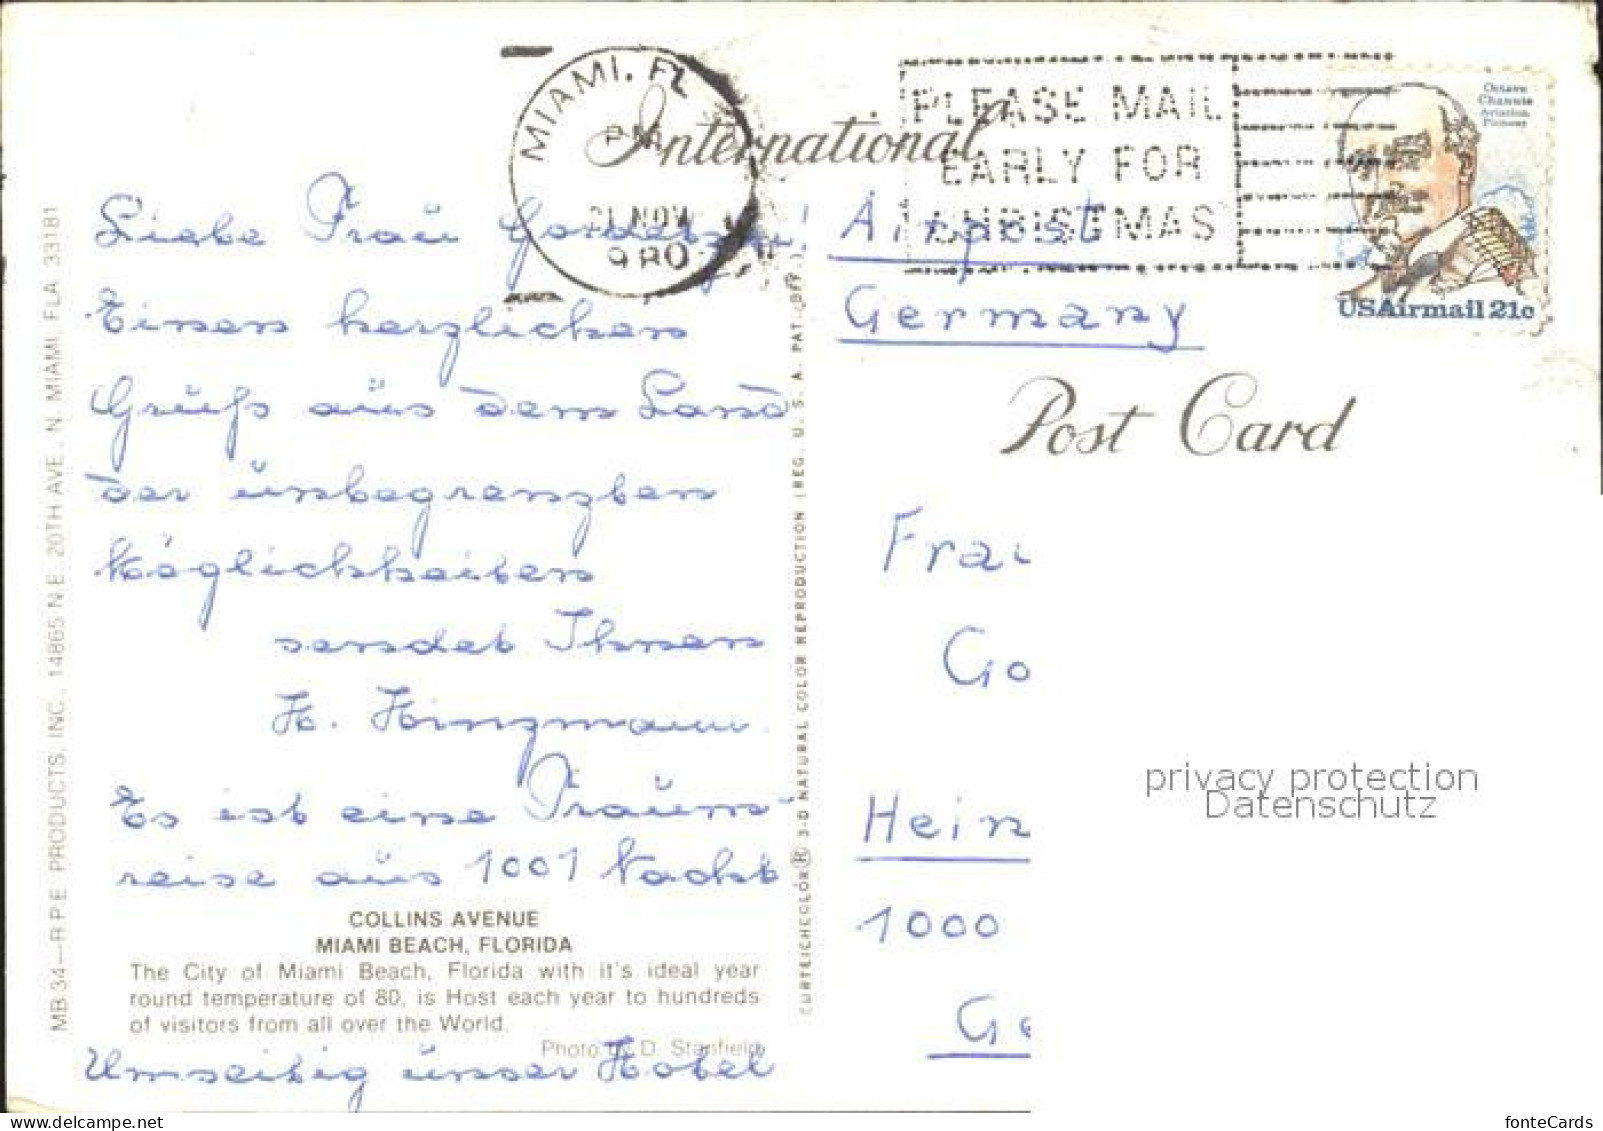 MIAMI, FL
PM
21 NOV
1980
PLEASE MAIL
EARLY FOR
CHRISTMAS
Octave
Chanute
Aviation
Pioneer
USAirmail 21c
International
Post Card
Liebe Frau
Einen herzlichen
Gruß aus dem Land
der unbegrenzten
Möglichkeiten
sendet Ihnen
H. Hinzmann.
Es ist eine Traum-
reise aus 1001 Nacht
COLLINS AVENUE
MIAMI BEACH, FLORIDA
The City of Miami Beach, Florida with it's ideal year
round temperature of 80, is Host each year to hundreds
of visitors from all over the World.
Photo by D. Stanfield
Umseitig unser Hotel
MB 34—R P E PRODUCTS, INC., 14865 N.E. 20TH AVE., N. MIAMI, FLA. 33181
CURTEICHCOLOR® 3-D NATURAL COLOR REPRODUCTION (REG. U. S. A. PAT. OFF.)
Airpost
Germany
Frau
Go
Hein
1000
Ge
privacy protection
Datenschutz
www.delcampe.net
fonteCards